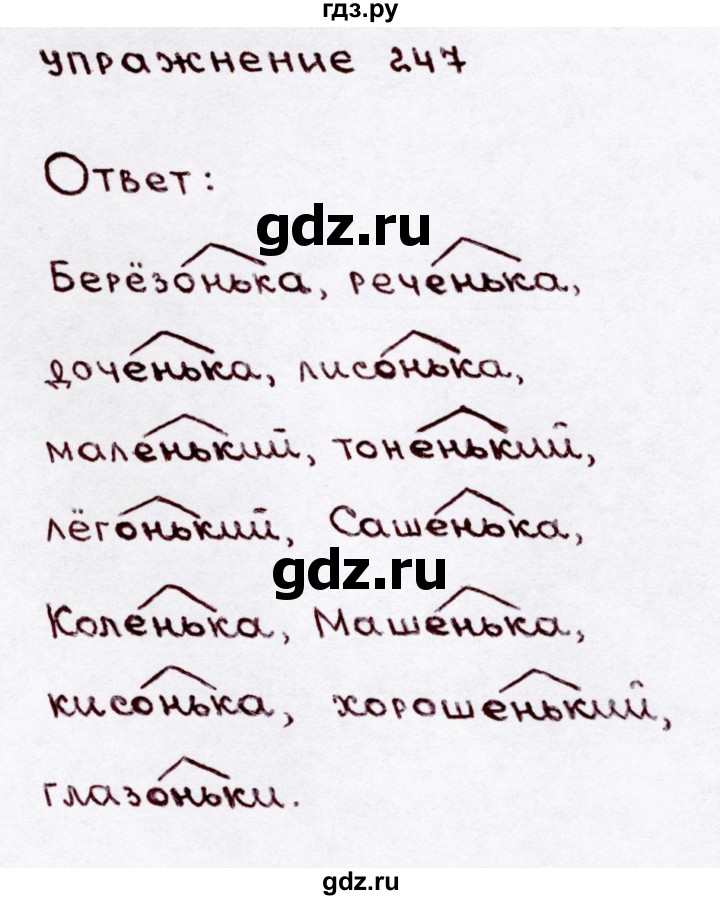 гдз.ру
упражнение 247
Ответ:
gdz.ru
Берёзонька, реченька,
доченька, лисонька,
маленький, тоненький,
лёгонький, Сашенька,
gdz.ru
Коленька, Машенька,
кисонька, хорошенький,
глазоньки.
gdz.ru